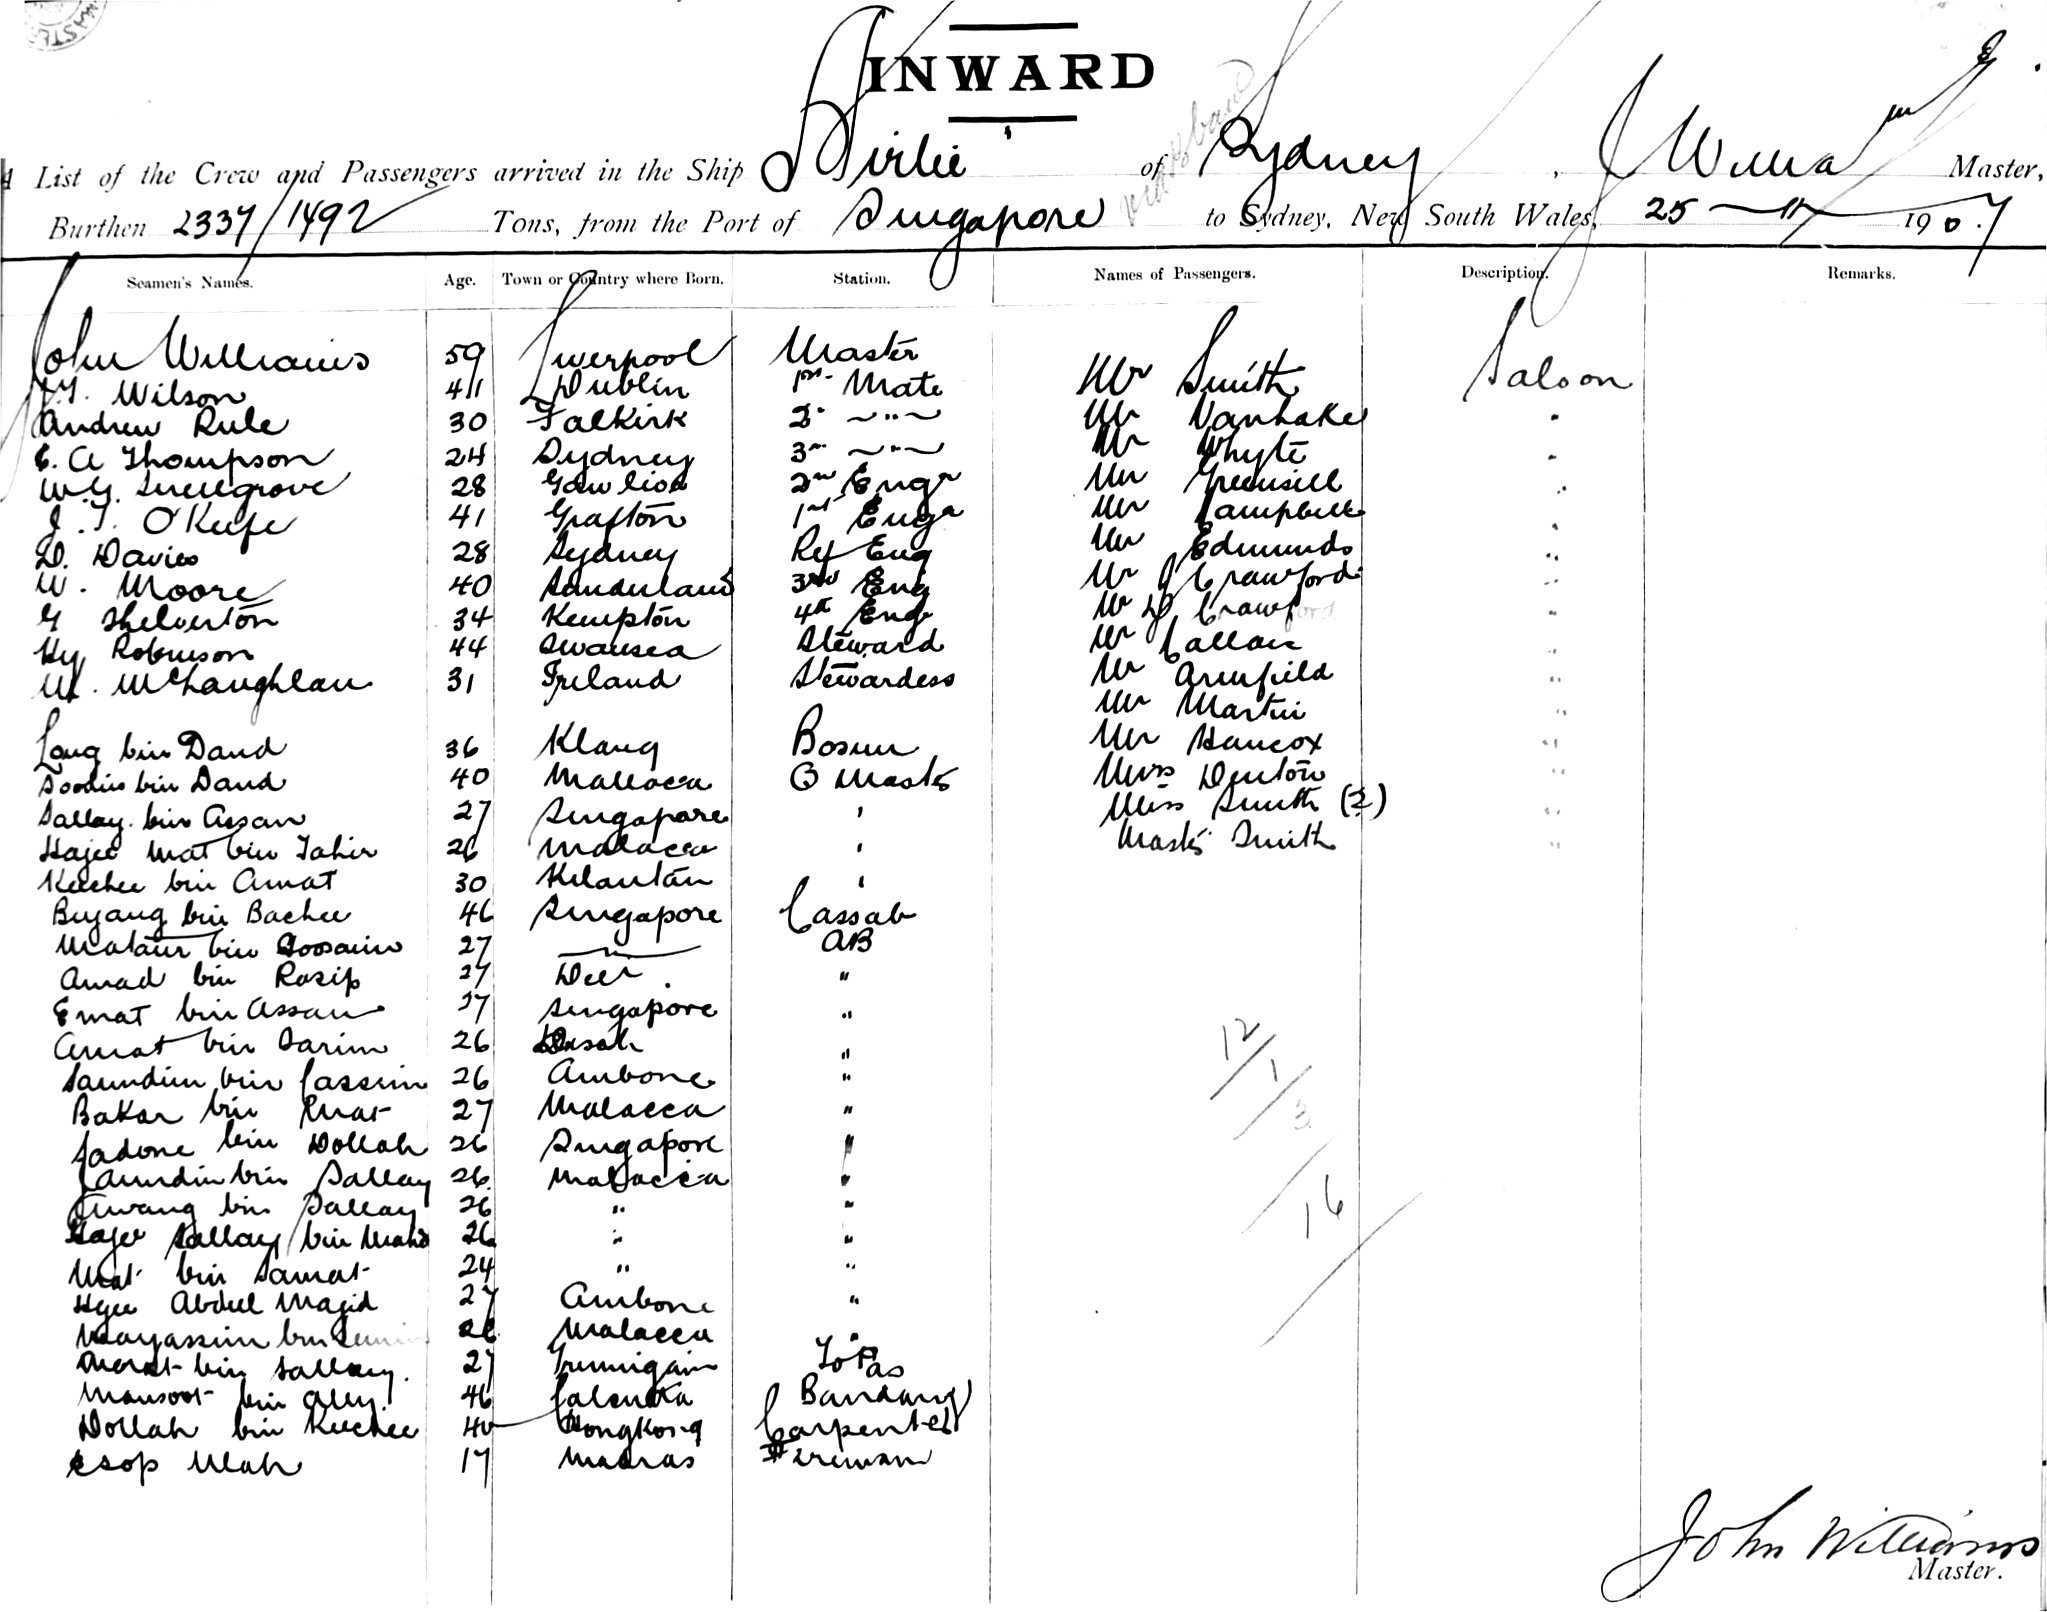 INWARD
A List of the Crew and Passengers arrived in the Ship Airlie of Sydney, J Williams Master,
Burthen 2337/1492 Tons, from the Port of Singapore to Sydney, New South Wales, 25 - 11 - 1907
Seamen's Names. Age. Town or Country where Born. Station. Names of Passengers. Description. Remarks.
John Williams 59 Liverpool Master Mr Smith Saloon
Wilson 41 Dublin 1st Mate Mr Vanhake "
Andrew Rule 30 Falkirk 2 " Mr Whyte "
E. A Thompson 24 Sydney 3rd " Mr Greensill "
W.G. Snellgrove 28 2nd Engr Mr Campbell "
J. T. O'Keefe 41 Grafton 1st Engr Mr Edmunds "
D. Davies 28 Sydney Ref Eng Mr J Crawford "
W. Moore 40 Sunderland 3rd Eng Mr D Crawford "
G Shelverton 34 Kempton 4th Eng Mr Callan "
Hy Robinson 44 Swansea Steward Mr Armfield "
M. McLaughlan 31 Ireland Stewardess Mr Martin "
Long bin Daud 36 Klang Bosun Mr Hancox "
Soodin bin Daud 40 Mallacca Q Mastr Miss Denton "
Sallay bin Assan 27 Singapore " Miss Smith (2) "
Hajee Mat bin Tahir 26 Malacca " Mastr Smith "
Keechee bin Amat 30 Kelantan "
Buyang bin Bachee 46 Singapore Cassab
bin Hoosain 27 " AB
Amad bin Rasip 27 Deli "
Emat bin Assan 27 Singapore "
Amat bin Sarim 26 "
Saundin bin Cassim 26 Ambone "
Bakar bin 27 Malacca "
Sadone bin Dollah 26 Singapore "
bin Sallay 26 Malacca "
Awang bin Sallay 26 " "
Hajee Sallay bin 26 " "
Mat bin Samat 24 " "
Hjee Abdul Majid 27 Ambone "
bin 26 Malacca "
bin Sallay. 27 Topas
bin Ally. 46 Calcutta
Dollah bin Keechee 40 Hongkong Carpenter
Esop Ulah 17 Madras Fireman
12
1
3
16
John Williams
Master.